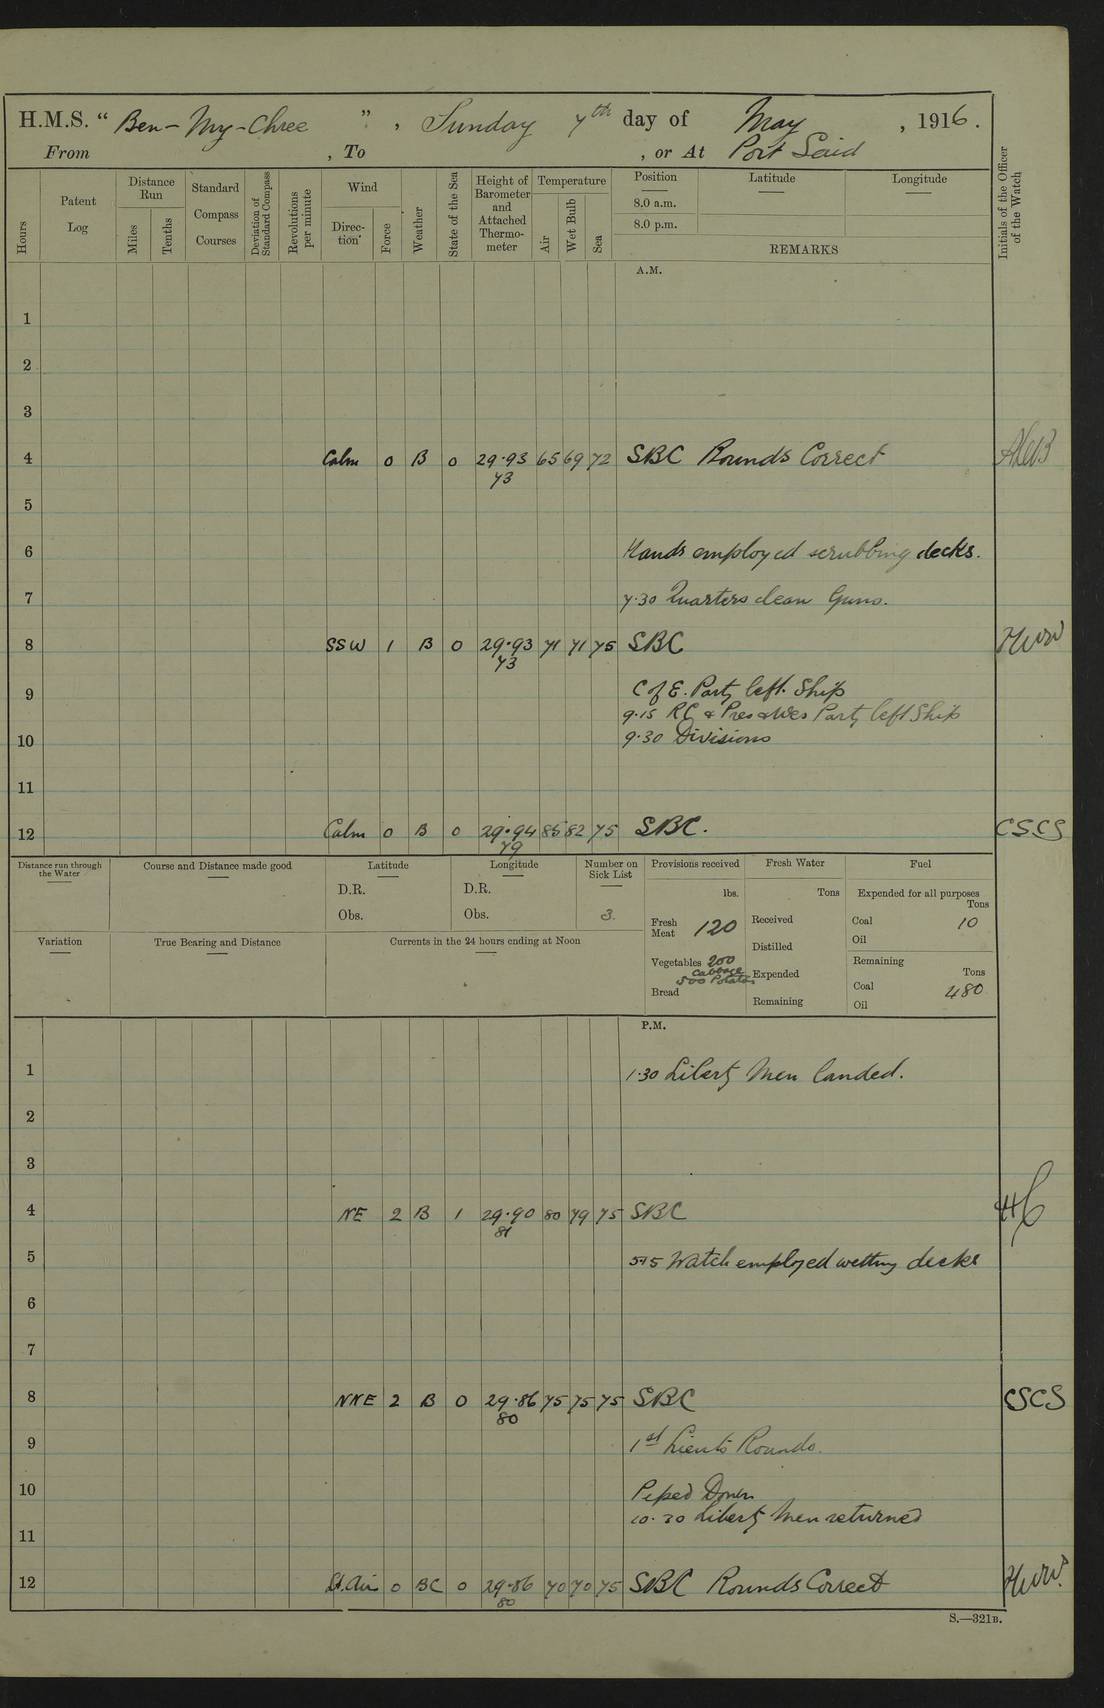 H.M.S. “ Ben-My-Chree ” , Sunday 7th day of May , 1916 .
From , To , or At Port Said
Hours
Patent Log
Distance Run
Miles
Tenths
Standard Compass Courses
Deviation of Standard Compass
Revolutions per minute
Wind
Direction
Force
Weather
State of the Sea
Height of Barometer and Attached Thermometer
Temperature
Air
Wet Bulb
Sea
Position
8.0 a.m.
8.0 p.m.
Latitude
Longitude
REMARKS
Initials of the Officer of the Watch
A.M.
1
2
3
4 Calm 0 B 0 29·93 65 69 72 SBC Rounds Correct
73
5
6 Hands employed scrubbing decks.
7 7·30 Quarters clean Guns.
8 SSW 1 B 0 29·93 71 71 75 SBC HWW
73
9 C of E. Party left Ship
9·15 RC & Pres & Wes Party left Ship
10 9·30 Divisions
11
12 Calm 0 B 0 29·94 85 82 75 SBC. CSCS
79
Distance run through the Water
Course and Distance made good
Latitude
D.R.
Obs.
Longitude
D.R.
Obs.
Number on Sick List
3
Provisions received
lbs.
Fresh Meat 120
Vegetables 200 Cabbage
500 Potatos
Bread
Fresh Water
Tons
Received
Distilled
Expended
Remaining
Fuel
Expended for all purposes
Tons
Coal 10
Oil
Remaining
Tons
Coal 480
Oil
Variation
True Bearing and Distance
Currents in the 24 hours ending at Noon
P.M.
1 1·30 Liberty Men landed.
2
3
4 NE 2 B 1 29·90 80 79 75 SBC
81
5 5·15 Watch employed wetting decks
6
7
8 NNE 2 B 0 29·86 75 75 75 SBC CSCS
80
9 1st Lieuts Rounds.
10 Piped Down
10·30 Liberty Men returned
11
12 Lt. Air 0 BC 0 29·86 70 70 75 SBC Rounds Correct HWW
80
S.—321B.